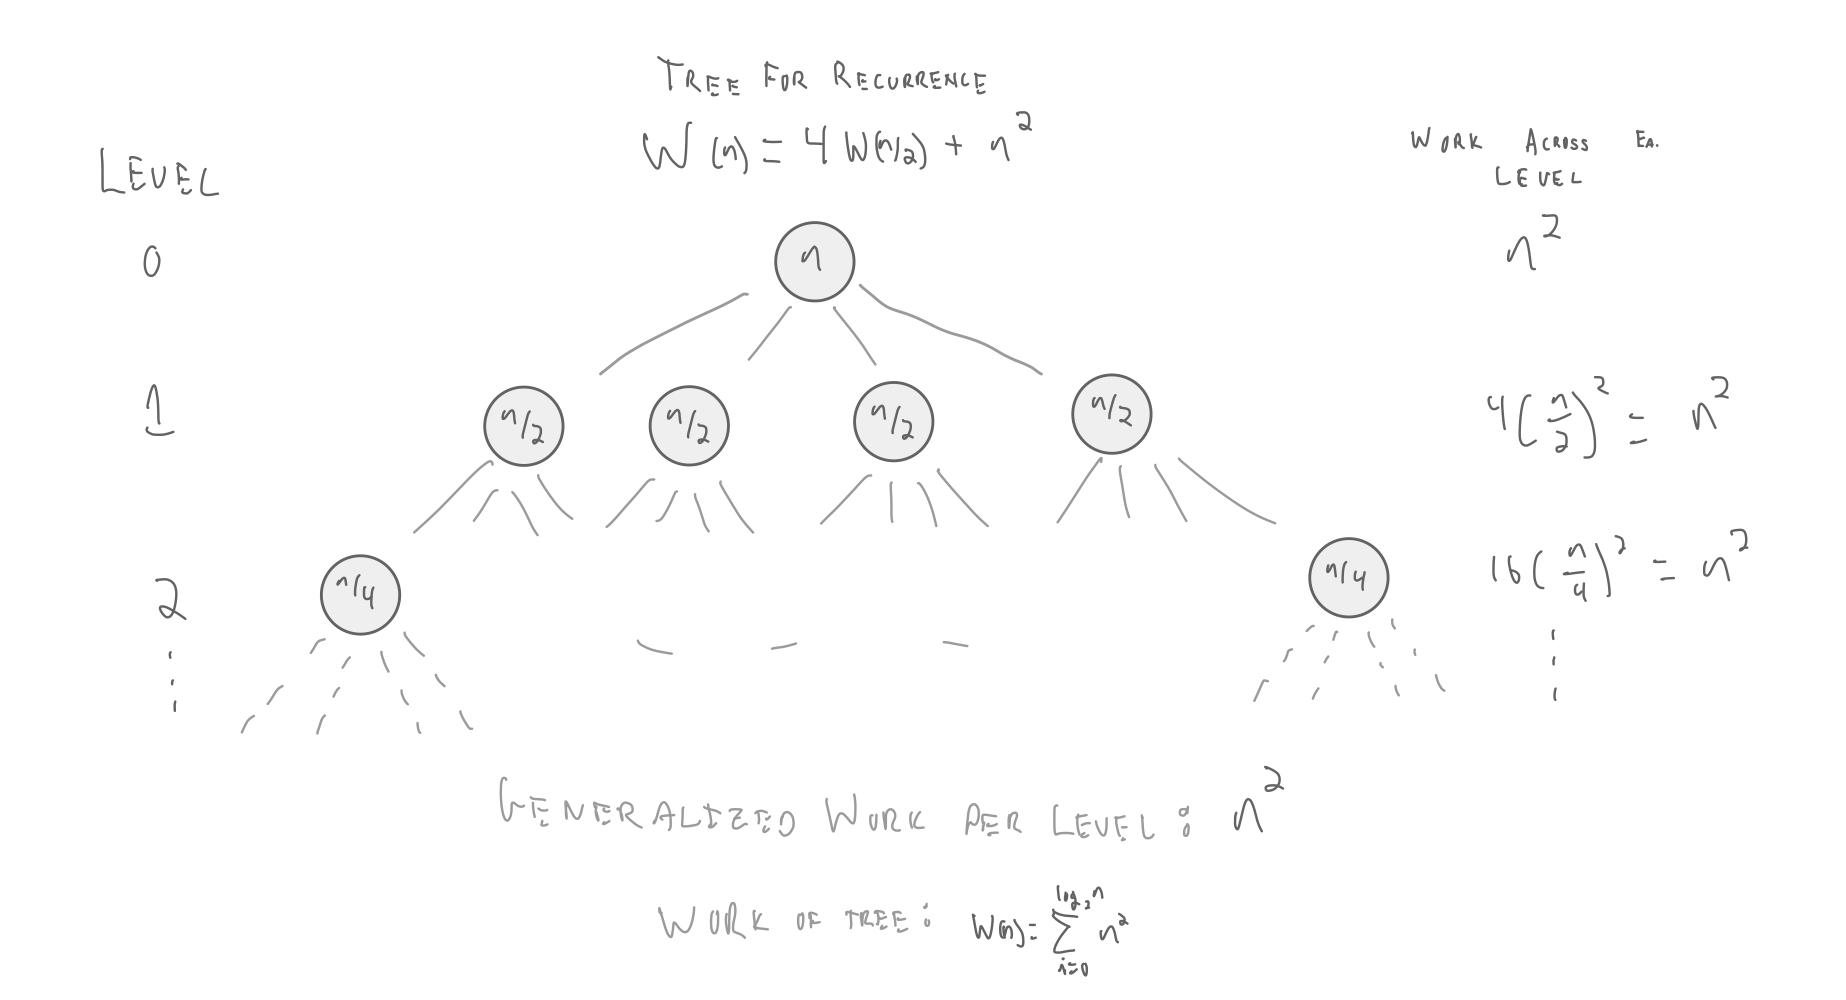 TREE FOR RECURRENCE
W(n) = 4 W(n/2) + n²
LEVEL
WORK ACROSS EA.
LEVEL
0
n
n²
1
n/2 n/2 n/2 n/2
4(n/2)² = n²
2
n/4 n/4
16(n/4)² = n²
GENERALIZED WORK PER LEVEL: n²
WORK OF TREE: W(n) = ∑_{i=0}^{log₂n} n²